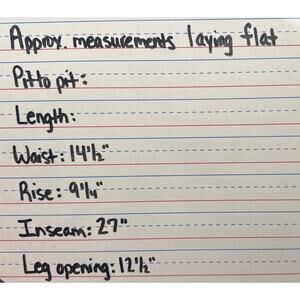 Approx. measurements laying flat
Pit to pit:
Length:
Waist: 14½"
Rise: 9¼"
Inseam: 27"
Leg opening: 12½"